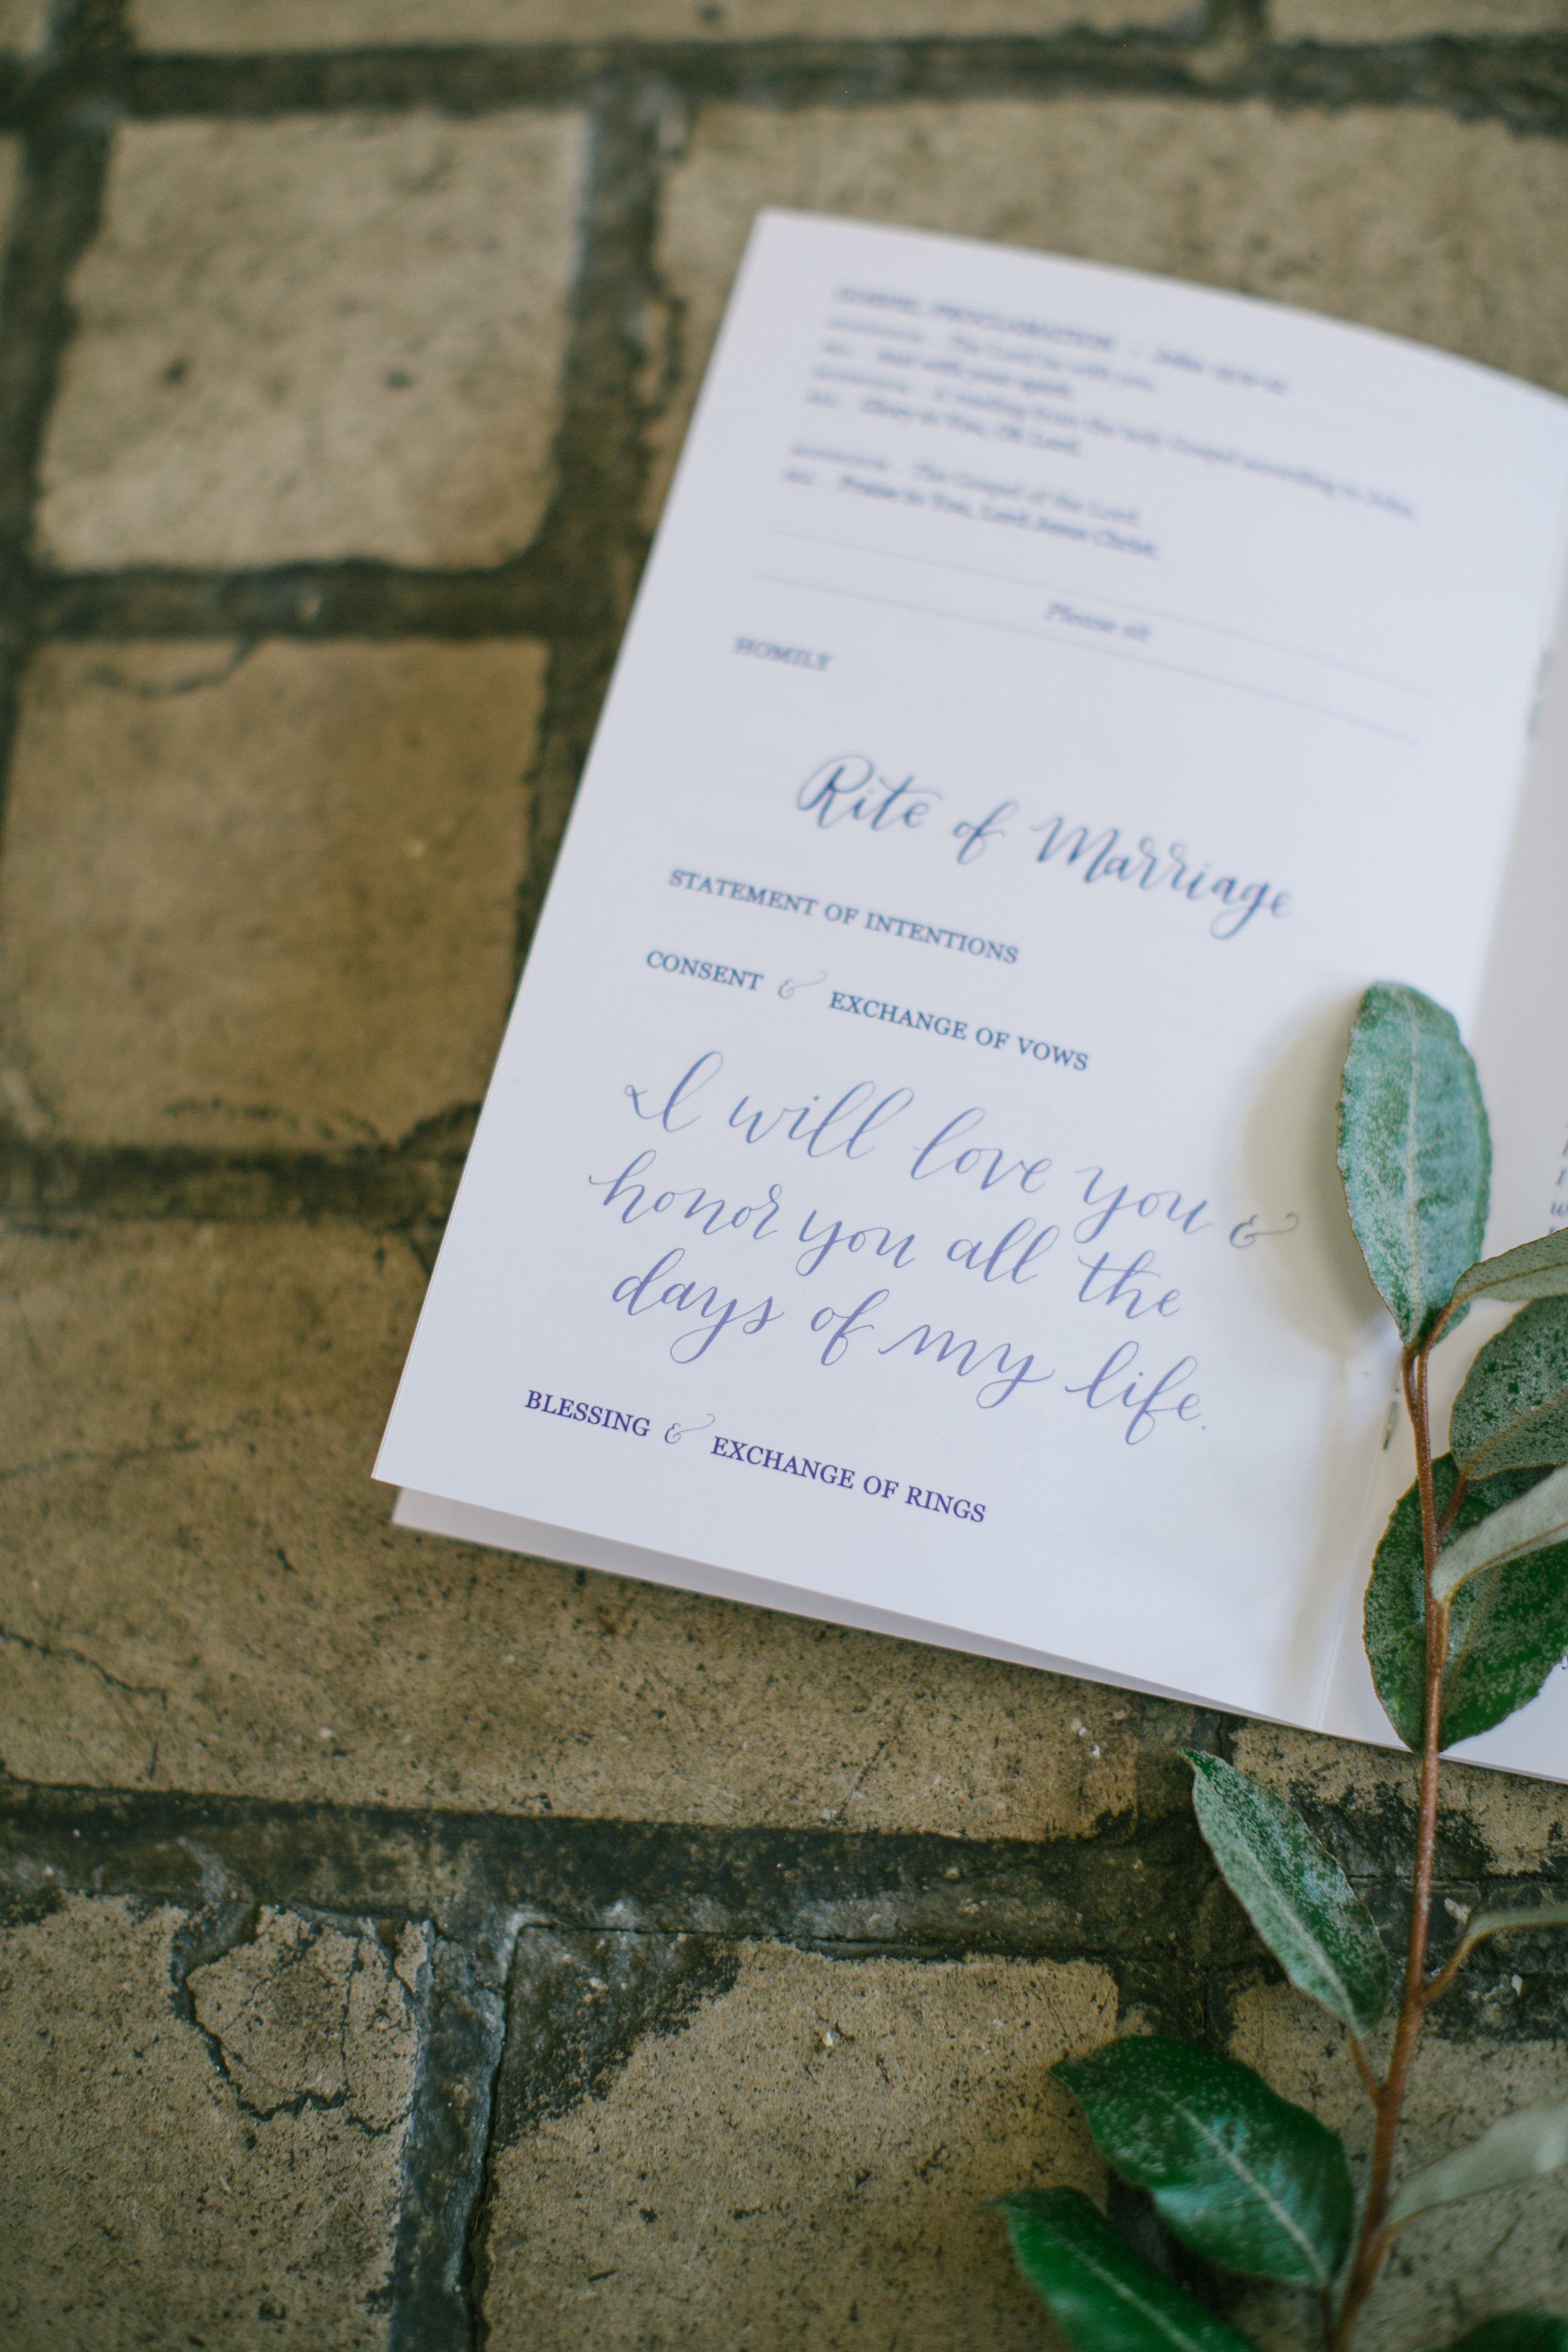 GOSPEL PROCLAMATION - John
The Lord be with you.
And with your spirit.
A reading from the holy Gospel according to John.
Glory to You, Oh Lord.
The Gospel of the Lord.
Praise to You, Lord Jesus Christ.
Please sit
HOMILY
Rite of Marriage
STATEMENT OF INTENTIONS
CONSENT & EXCHANGE OF VOWS
I will love you &
honor you all the
days of my life.
BLESSING & EXCHANGE OF RINGS